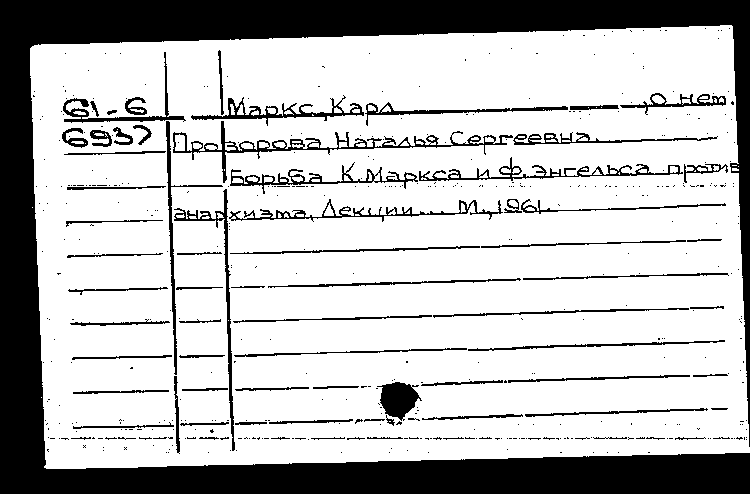 61-6 Маркс, Карл, о нем.
6937 Прозорова, Наталья Сергеевна.
Борьба К. Маркса и Ф. Энгельса против
анархизма. Лекции... М., 1961.